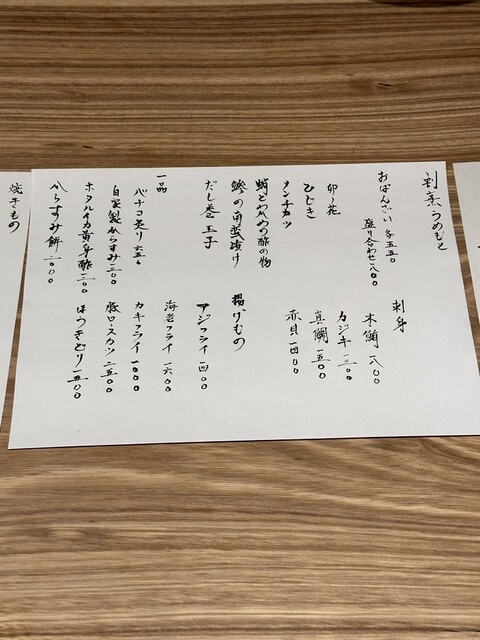 割烹 うめもと
おばんざい 各五五〇
盛り合わせ 一八〇〇
卯ノ花
ひじき
メンチカツ
蛸とわかめの酢の物
鯵の南蛮漬け
だし巻玉子
一品
バチコ炙り 六五〇
自家製からすみ 一二〇〇
ホタルイカ黄身酢 一二〇〇
からすみ餅 二〇〇〇
刺身
本鮪 一八〇〇
カジキ 一二〇〇
真鯛 一五〇〇
赤貝 一四〇〇
揚げもの
アジフライ 一四〇〇
海老フライ 一六〇〇
カキフライ 一八〇〇
豚ロースカツ 二五〇〇
焼きもの